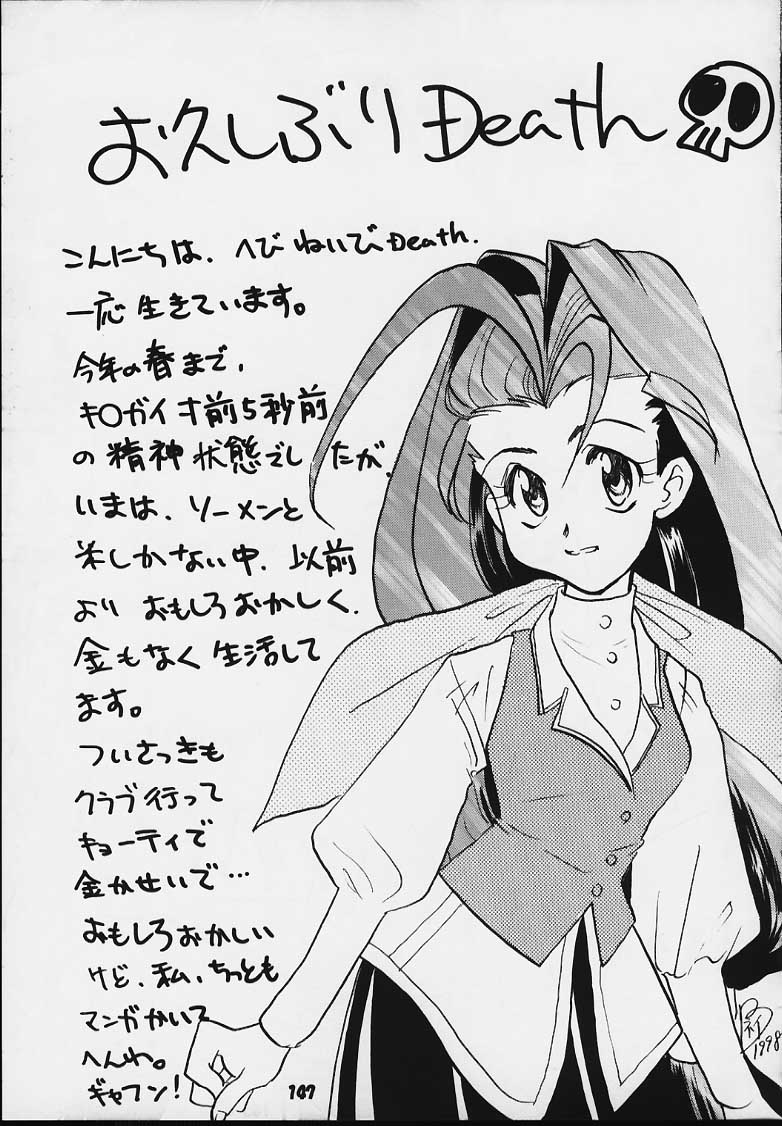 お久しぶりDeath
こんにちは、へびねいびDeath.
一応生きています。
今年の春まで、
キ〇ガイ才前5秒前
の精神状態でしたが、
いまは、ソーメンと
米しかない中、以前
よりおもしろおかしく、
金もなく生活して
ます。
ついさっきも
クラブ行って
キューティで
金かせいで…
おもしろおかしい
けど、私、ちっとも
マンガかいて
へんわ。
ギャフン!
1998
107